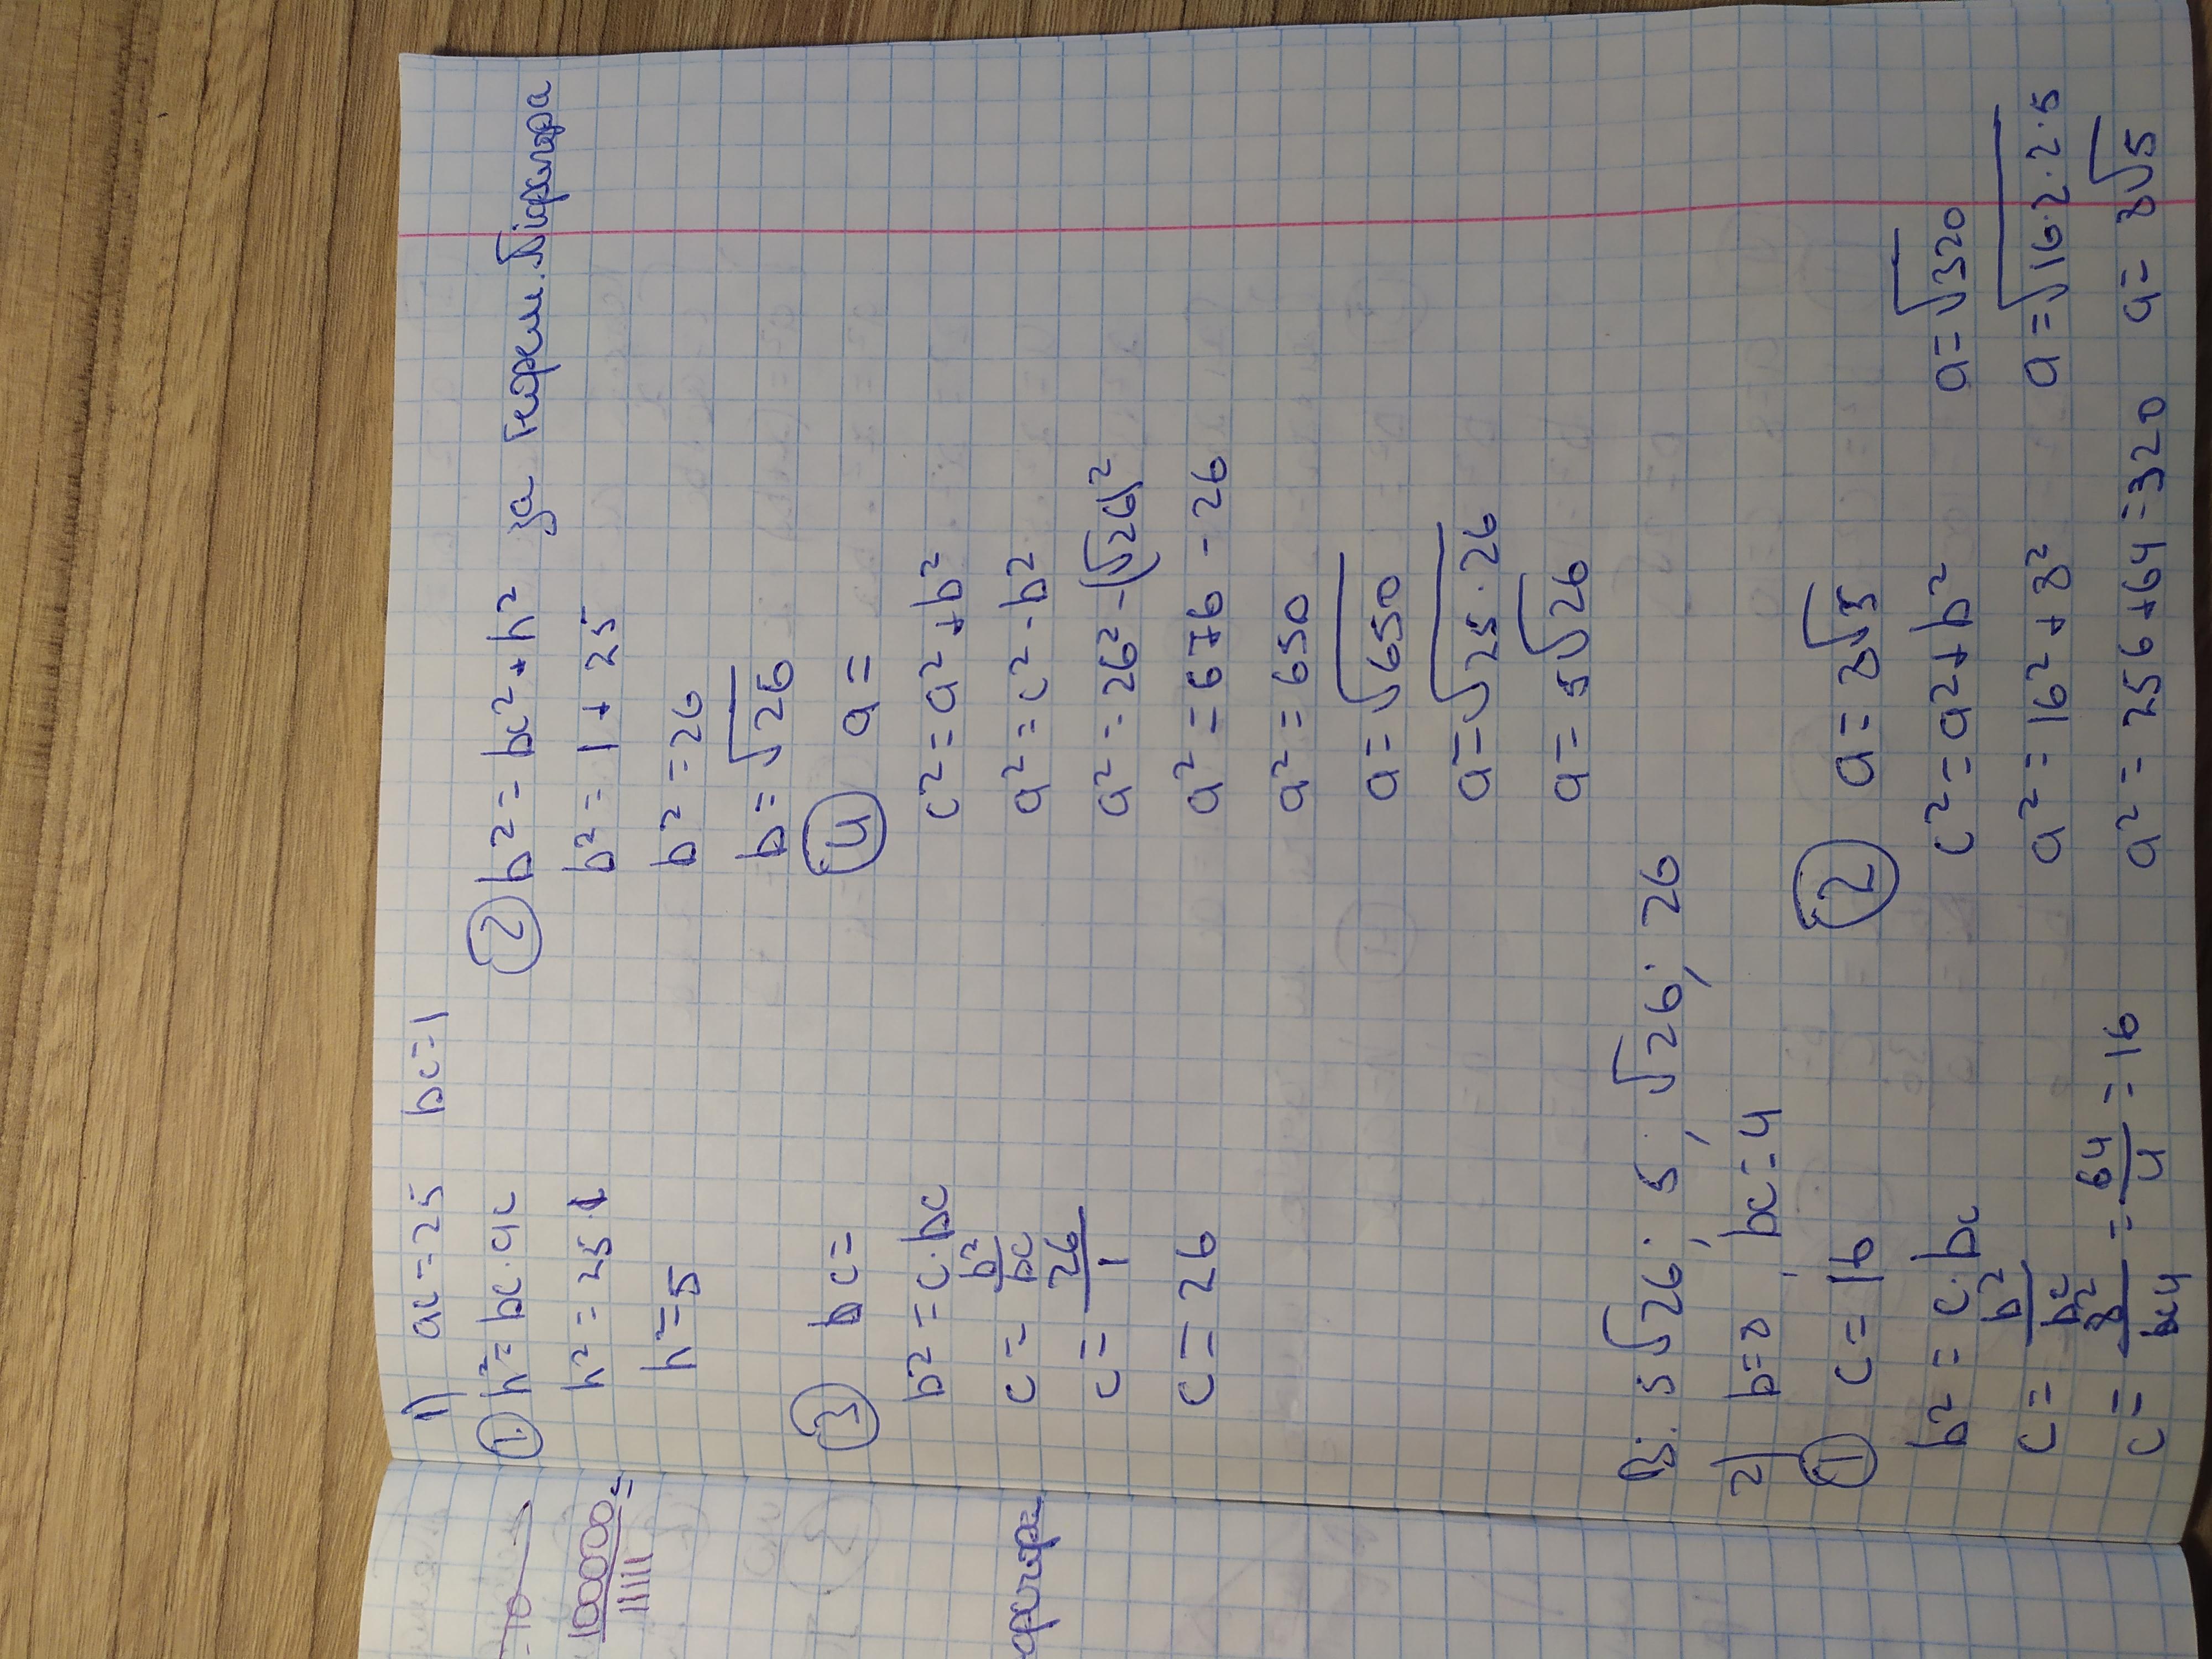 1) ac=25 bc=1
① h²=bc·ac
h²=25·1
h=5
② b²=bc²+h² за теорем. Піфагора
b²=1+25
b²=26
b=√26
③ bc=
b²=c·bc
c=b²/bc
c=26/1
c=26
④ a=
c²=a²+b²
a²=c²-b²
a²=26²-(√26)²
a²=676-26
a²=650
a=√650
a=√25·26
a=5√26
В: 5√26; 5; √26; 26
2) b=8; bc=4
① c=16
b²=c·bc
c=b²/bc
c=8²/4=64/4=16
② a=8√5
c²=a²+b²
a²=16²+8²
a²=256+64=320
a=√320
a=√16·2·2·5
a=8√5
10
100000=
11111
фагора